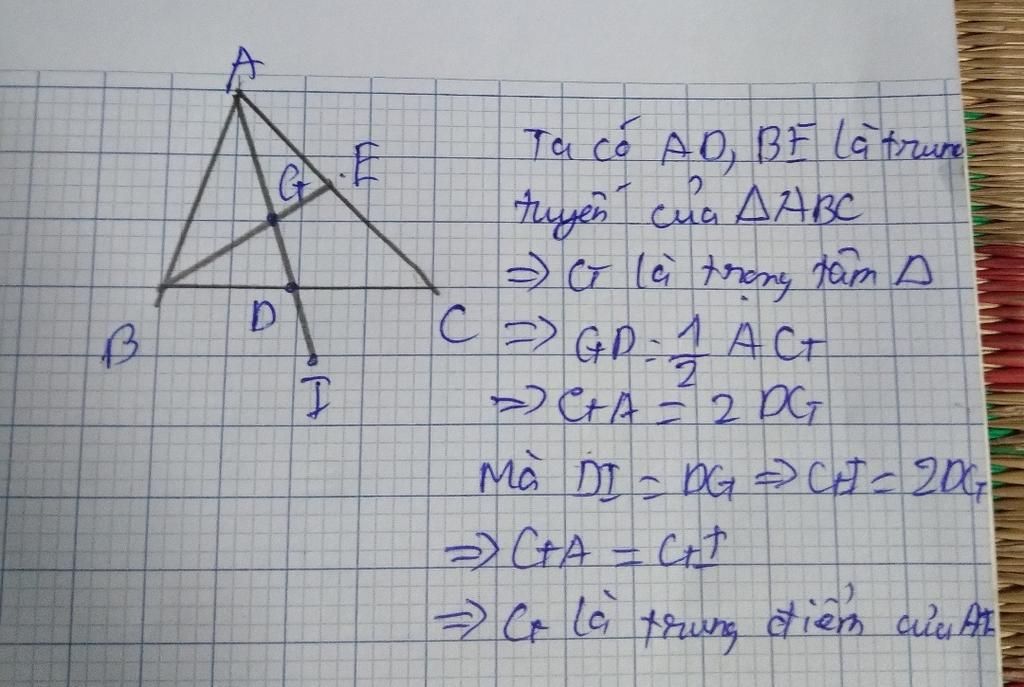 A
E
G
B
D
C
I
Ta có AD, BE là trung
tuyến của ΔABC
=> G là trọng tâm Δ
=> GD = 1/2 AG
=> GA = 2 DG
Mà DI = DG => GI = 2DG
=> GA = GI
=> G là trung điểm của AI